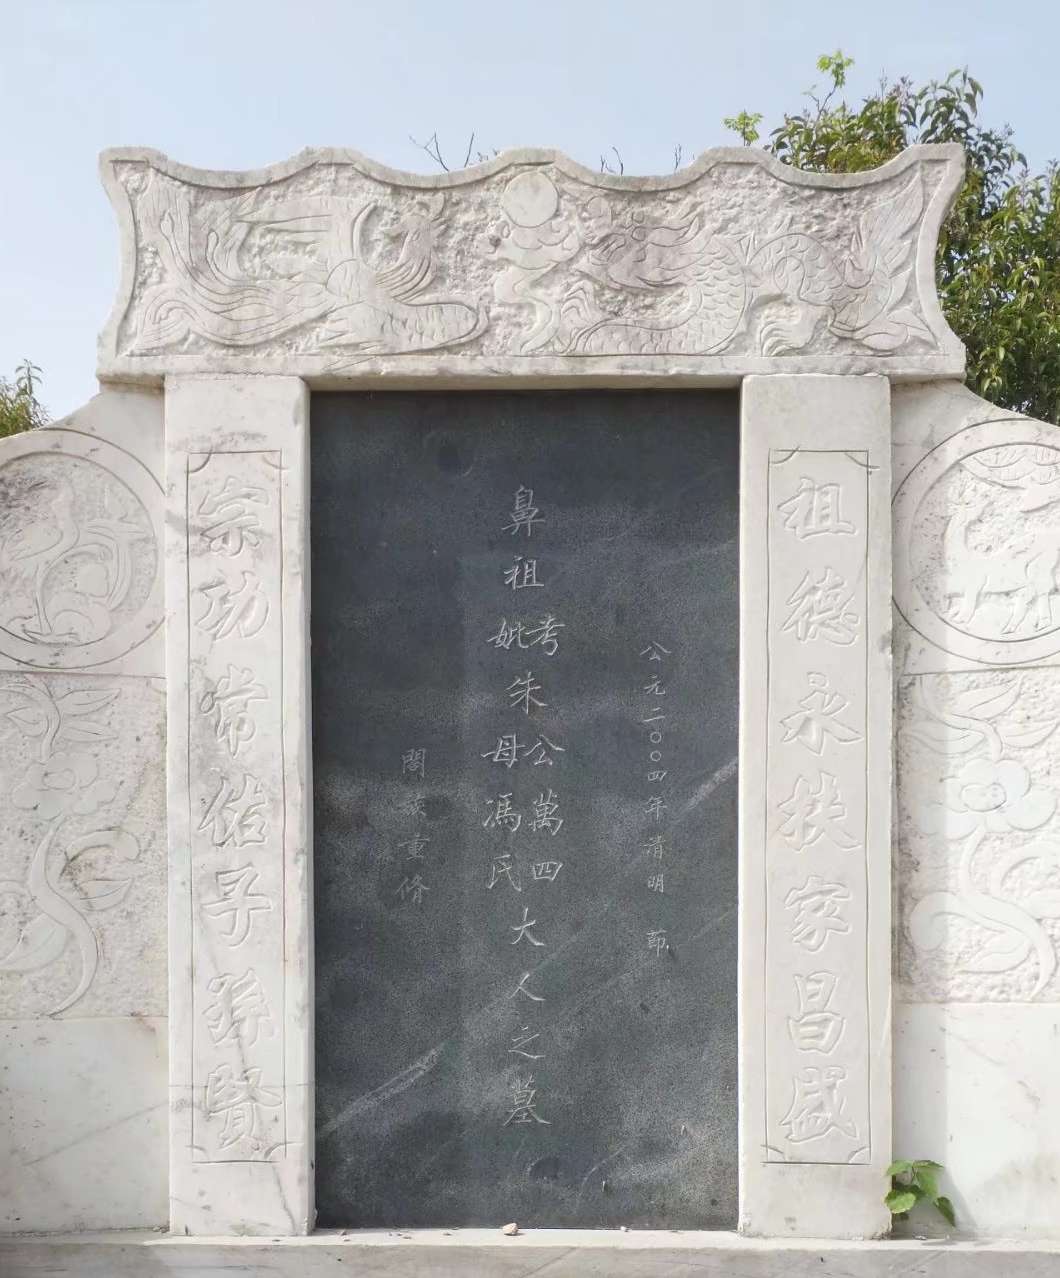 祖德永扶家昌盛
公元二〇〇四年清明節
鼻祖考妣朱公萬四母馮氏大人之墓
閤族重脩
宗功常佑子孫賢